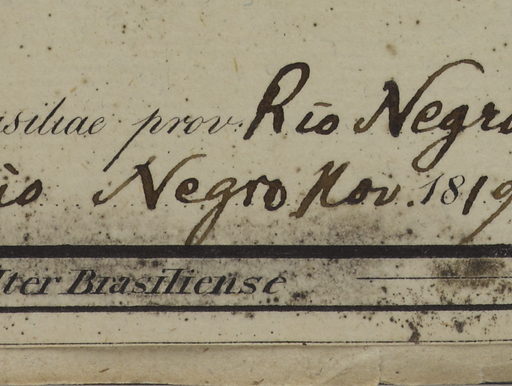 asiliae prov. Rio Negro
io Negro Nov. 1819
Iter Brasiliense